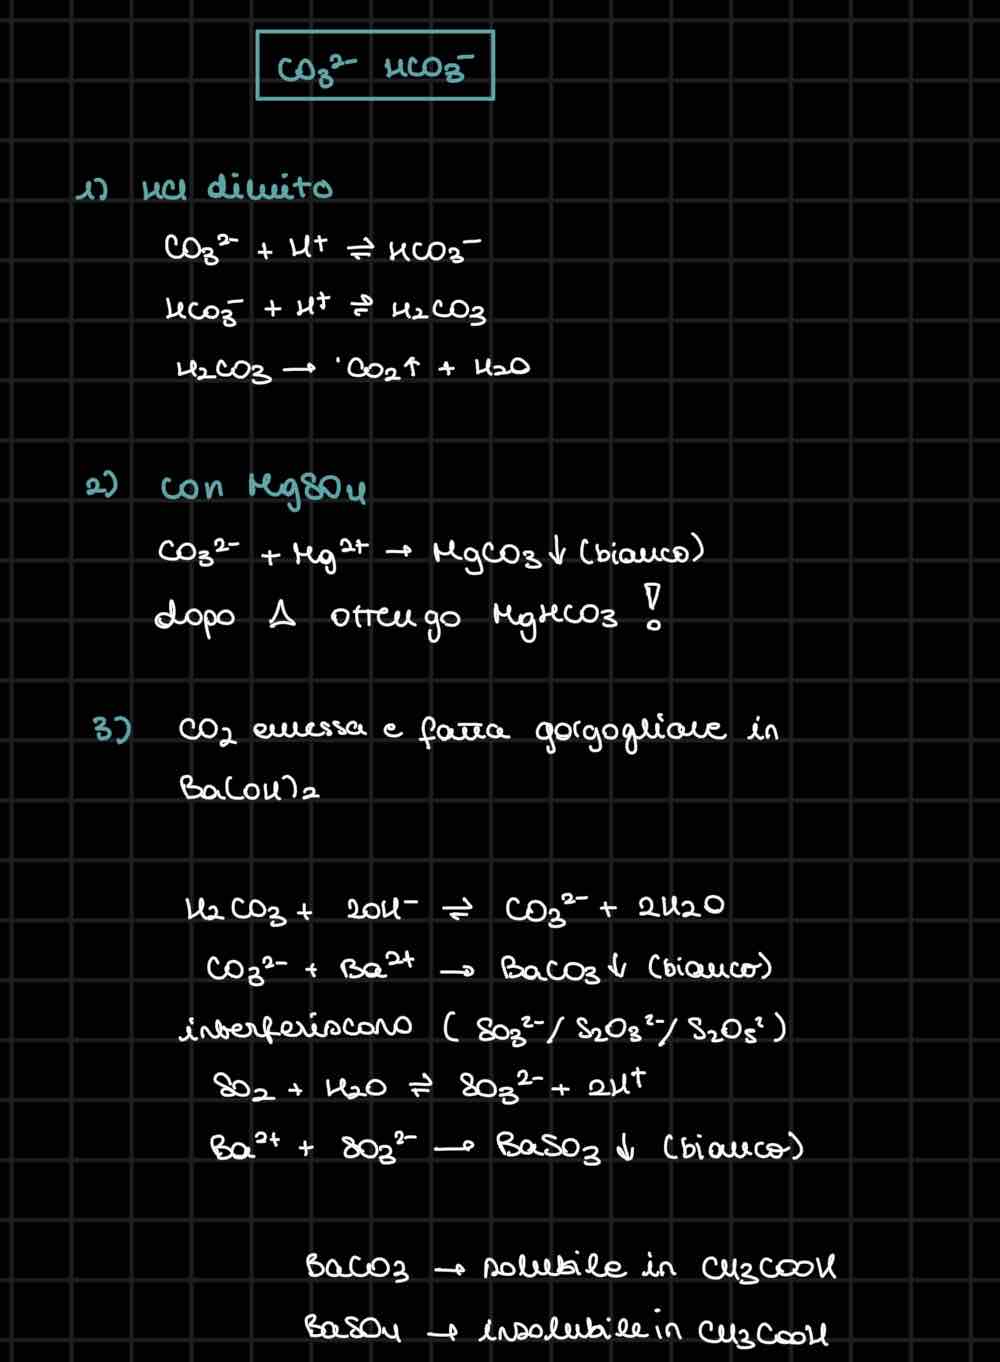 CO₃²⁻ HCO₃⁻
1) HCl diluito
CO₃²⁻ + H⁺ ⇌ HCO₃⁻
HCO₃⁻ + H⁺ ⇌ H₂CO₃
H₂CO₃ → CO₂↑ + H₂O
2) con MgSO₄
CO₃²⁻ + Mg²⁺ → MgCO₃↓ (bianco)
dopo Δ ottengo MgHCO₃ !
3) CO₂ emessa e fatta gorgogliare in
Ba(OH)₂
H₂CO₃ + 2OH⁻ ⇌ CO₃²⁻ + 2H₂O
CO₃²⁻ + Ba²⁺ → BaCO₃↓ (bianco)
interferiscono (SO₃²⁻/ S₂O₃²⁻/ S₂O₅²)
SO₂ + H₂O ⇌ SO₃²⁻ + 2H⁺
Ba²⁺ + SO₃²⁻ → BaSO₃↓ (bianco)
BaCO₃ → solubile in CH₃COOH
BaSO₄ → insolubile in CH₃COOH